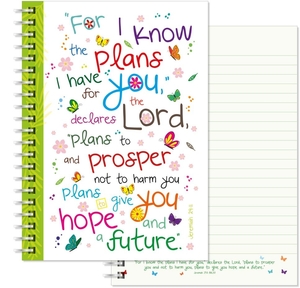 "For I know
the plans
I have for you,"
declares the
Lord,
"plans to
and prosper
not to harm you
plans to give you
hope and
a future."
"For I know the plans I have for you," declares the Lord, "plans to prosper
you and not to harm you, plans to give you hope and a future."